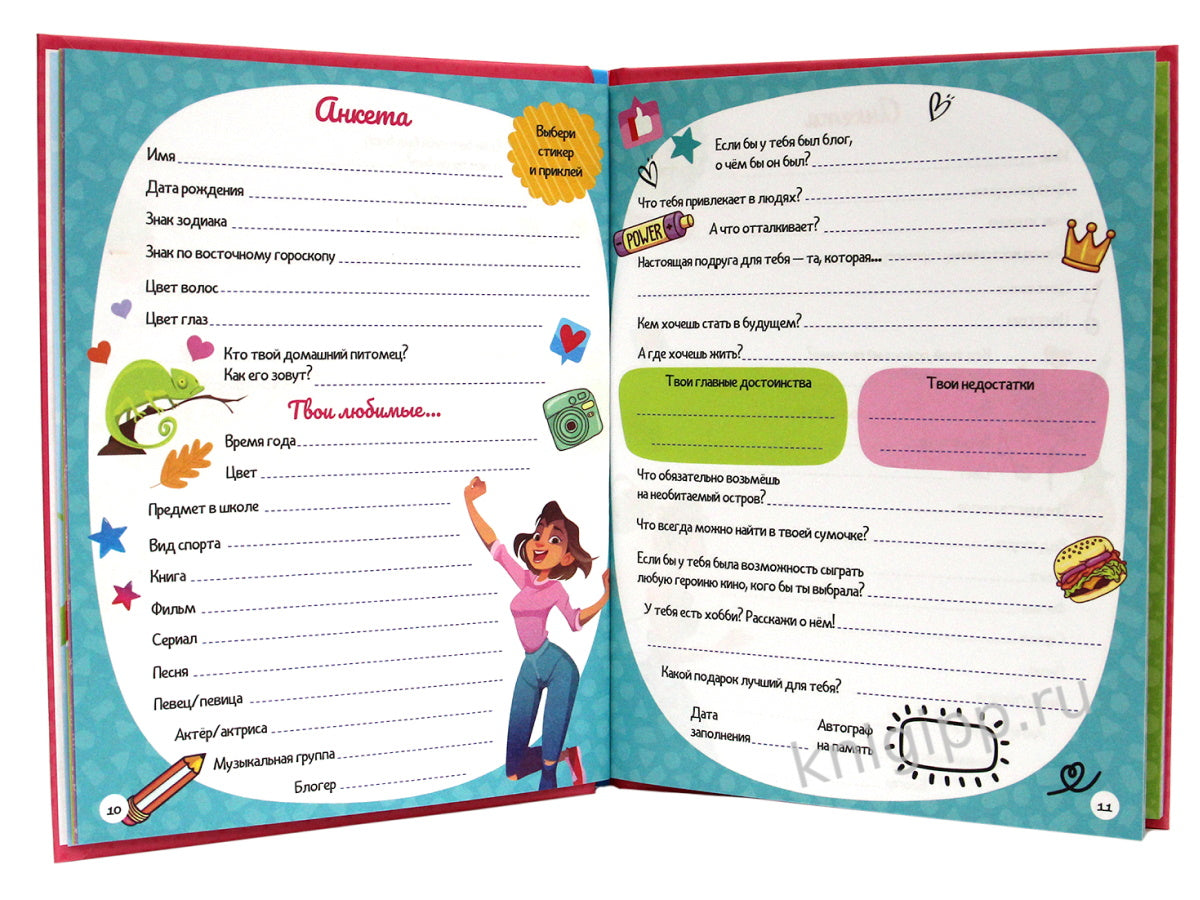 Анкета
Выбери
стикер
и приклей
Имя
Дата рождения
Знак зодиака
Знак по восточному гороскопу
Цвет волос
Цвет глаз
Кто твой домашний питомец?
Как его зовут?
Твои любимые...
Время года
Цвет
Предмет в школе
Вид спорта
Книга
Фильм
Сериал
Песня
Певец/певица
Актёр/актриса
Музыкальная группа
Блогер
10
Если бы у тебя был блог,
о чём бы он был?
Что тебя привлекает в людях?
POWER
А что отталкивает?
Настоящая подруга для тебя — та, которая...
Кем хочешь стать в будущем?
А где хочешь жить?
Твои главные достоинства
Твои недостатки
Что обязательно возьмёшь
на необитаемый остров?
Что всегда можно найти в твоей сумочке?
Если бы у тебя была возможность сыграть
любую героиню кино, кого бы ты выбрала?
У тебя есть хобби? Расскажи о нём!
Какой подарок лучший для тебя?
Дата
заполнения
Автограф
на память
knigipp.ru
11